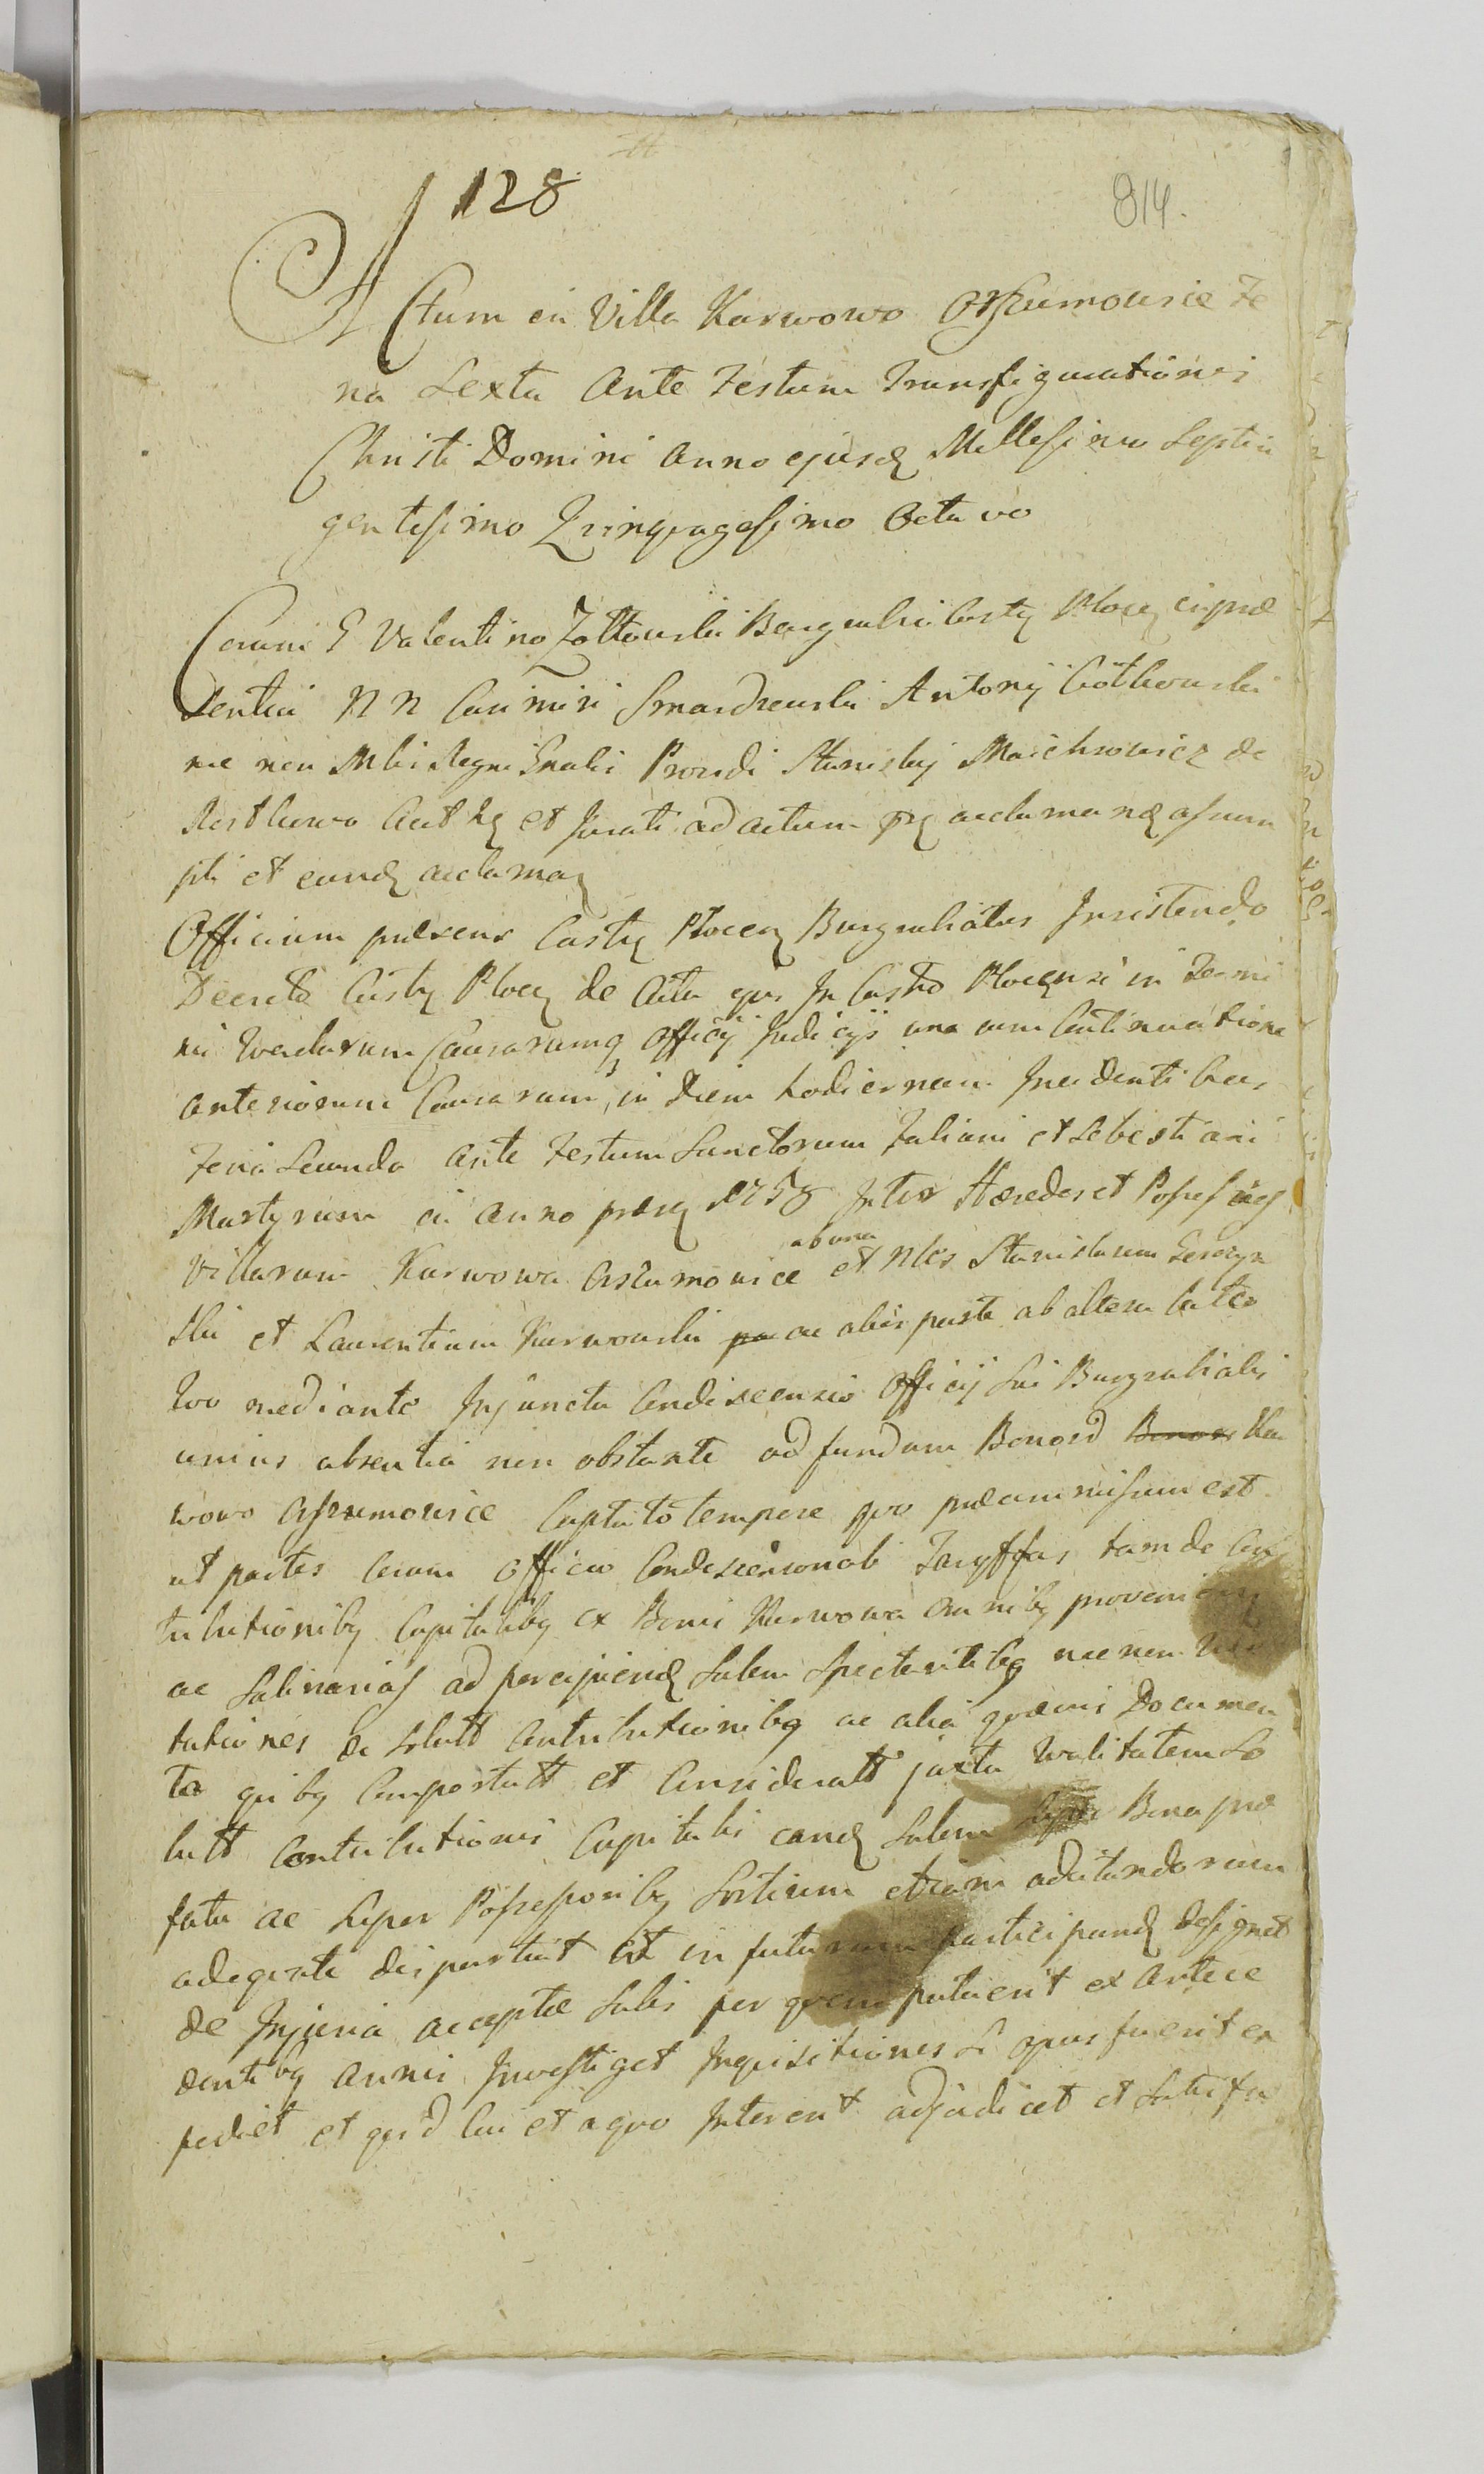 128
814.
Actum in Villa Karwowo Orszumowice Fe
ria Sexta Ante Festum Transfigurationis
Christi Domini Anno ejusd Millesimo Septin
gentesimo Quinquagesimo Octavo
Coram G Valentino Zołtowski Burgrabio Castr Plocen in prae
sentia N N Casimiri Smardzewski Antonij Ciółkowski
nec non Mbi Regni Gnalis Providi Stanislaj Maichrowicz de
et Jurati ad actum acclamand assum
pti et eund acclaman
Officium praesens Castr Plocen Burgrabiatus Insistendo
Decreto Castr Plocen de Actu ejus In Castro Plocensi in Termi
ni Querelarum Causarumq Officij Judicijs una cum Continuatione
anteriorum Causarum, in Diem hodiernam Incidentibus
Feria Secunda Ante Festum Sanctorum Fabiani et Sebestiani
Martyrum in Anno praesen 1758 Inter Haeredes et Possessores
Villarum Karwowa Orszumowice ab una et Nbles Stanislaum
ski et Laurentium Karwowski pa ac alios parte ab altera Latto
quo mediante Injuncta Condescensio Officij Sui Burgrabialis
unius absentia non obstante ad fundum Bonord Bonor Kar
wowo Orszumowice Captato tempore quo praeammissum est
ut partes Coram Officio Condescensionali Taryffas tam de Con
tributionibq Capitalibq ex Bonis Karwowa Omnibq provenien
ac Salinarias ad percipiend Salem Spectantibq nec non Qui
tationes de Solutt Contributionibq ac alia quaevis Documen
ta quibq Comportatt et Consideratt juxta Qualitatem So
lutt Contributionis Capitalis eand Salem Super Bona prae
fata ac Super Possessoribq Sortium etiam aditandorum
adaequate dispartiat et in futurum participand designet
de Injuria acceptae Salis per quem patuerit ex Antece
dentibq Annis Investiget Inquisitiones Si opus fuerit ex
pediet et quid Cui et a quo Intererit adjudicet et Satisfa